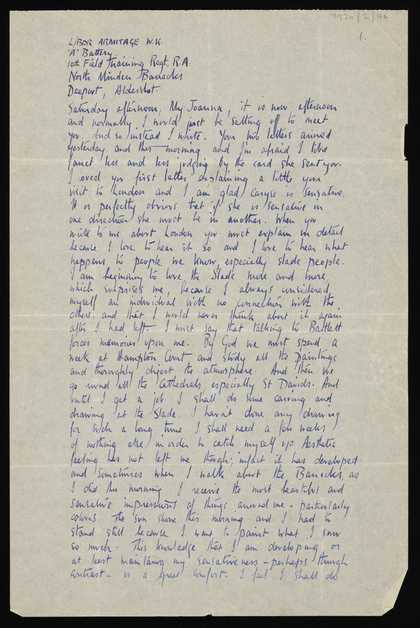 7920/2/1
1.
L/BDR ARMITAGE W.K.
'A' Battery
10th Field Training Regt R.A.
North Minden Barracks
Deepcut, Aldershot.
Saturday afternoon, My Joanna, it is now afternoon
and normally I would just be setting off to meet
you. And so instead I write. Your two letters arrived
yesterday and this morning and I'm afraid I like
Janet less and less judging by the card she sent you.
I loved your first letter explaining a little your
visit to London and I am glad is sensative.
It is perfectly obvious that if she is sensative in
one direction she must be in another. When you
write to me about London you must explain in detail
because I love to hear it so and I love to hear what
happens to people we know, especially Slade people.
I am beginning to love the Slade more and more
which surprises me, because I always considered
myself an individual with no connection with the
others and that I would never think about it again
after I had left. I must say that talking to Bartlett
forces memories upon me. By God we must spend a
week at Hampton Court and study all the Paintings
and thoroughly digest the atmosphere. And then we
go round all the Cathedrals especially St Davids. And
until I get a job I shall do some carving and
drawing at the Slade. I havn't done any drawing
for such a long time I shall need a few weeks
of nothing else in order to catch myself up. Aesthetic
feeling has not left me though; infact it has developed
and sometimes when I walk about the Barracks, as
I did this morning I receive the most beautiful and
sensative impressions of things around me - particularly
colours. The sun shone this morning and I had to
stand still because I want to paint what I saw
so much. This knowledge that I am developing or
at least maintaining my sensativeness - perhaps through
contrast - is a great comfort. I feel I shall do